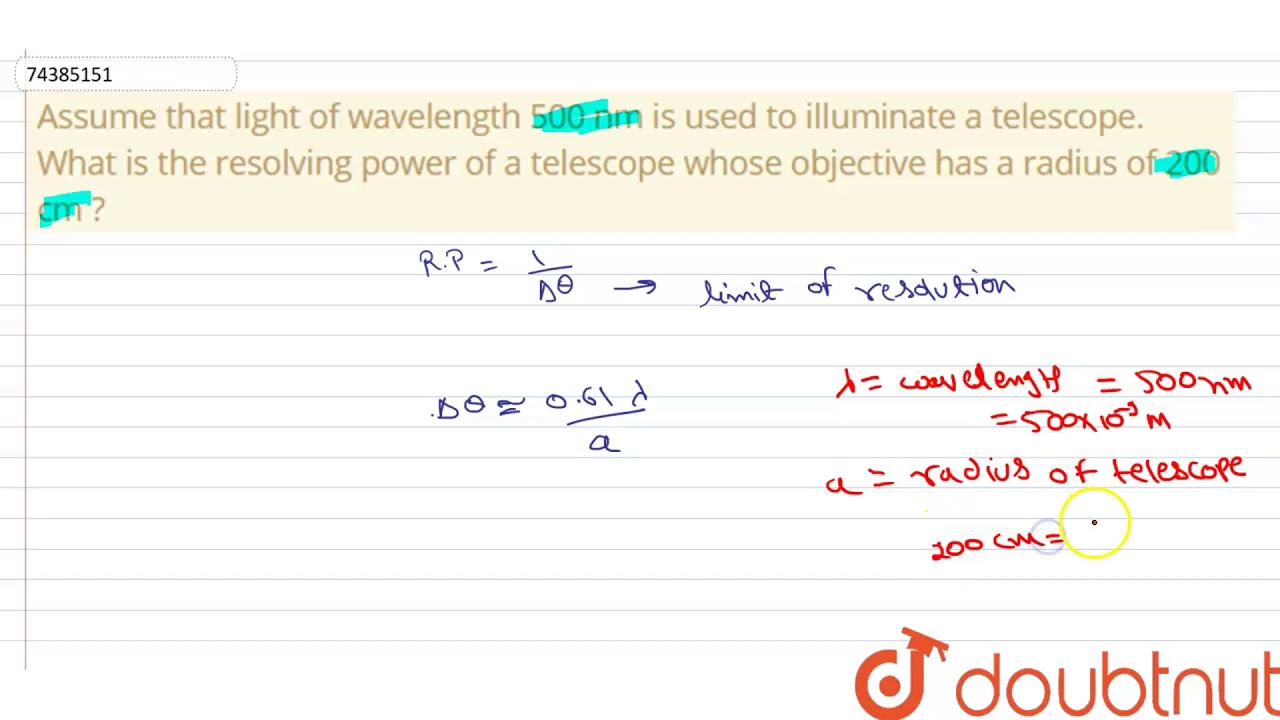 74385151
Assume that light of wavelength 500 nm is used to illuminate a telescope.
What is the resolving power of a telescope whose objective has a radius of 200
cm ?
R.P = 1/Δθ → limit of resolution
Δθ ≈ 0.61 λ/a
λ = wavelength = 500 nm
= 500×10⁻⁹ m
a = radius of telescope
200 cm =
doubtnut